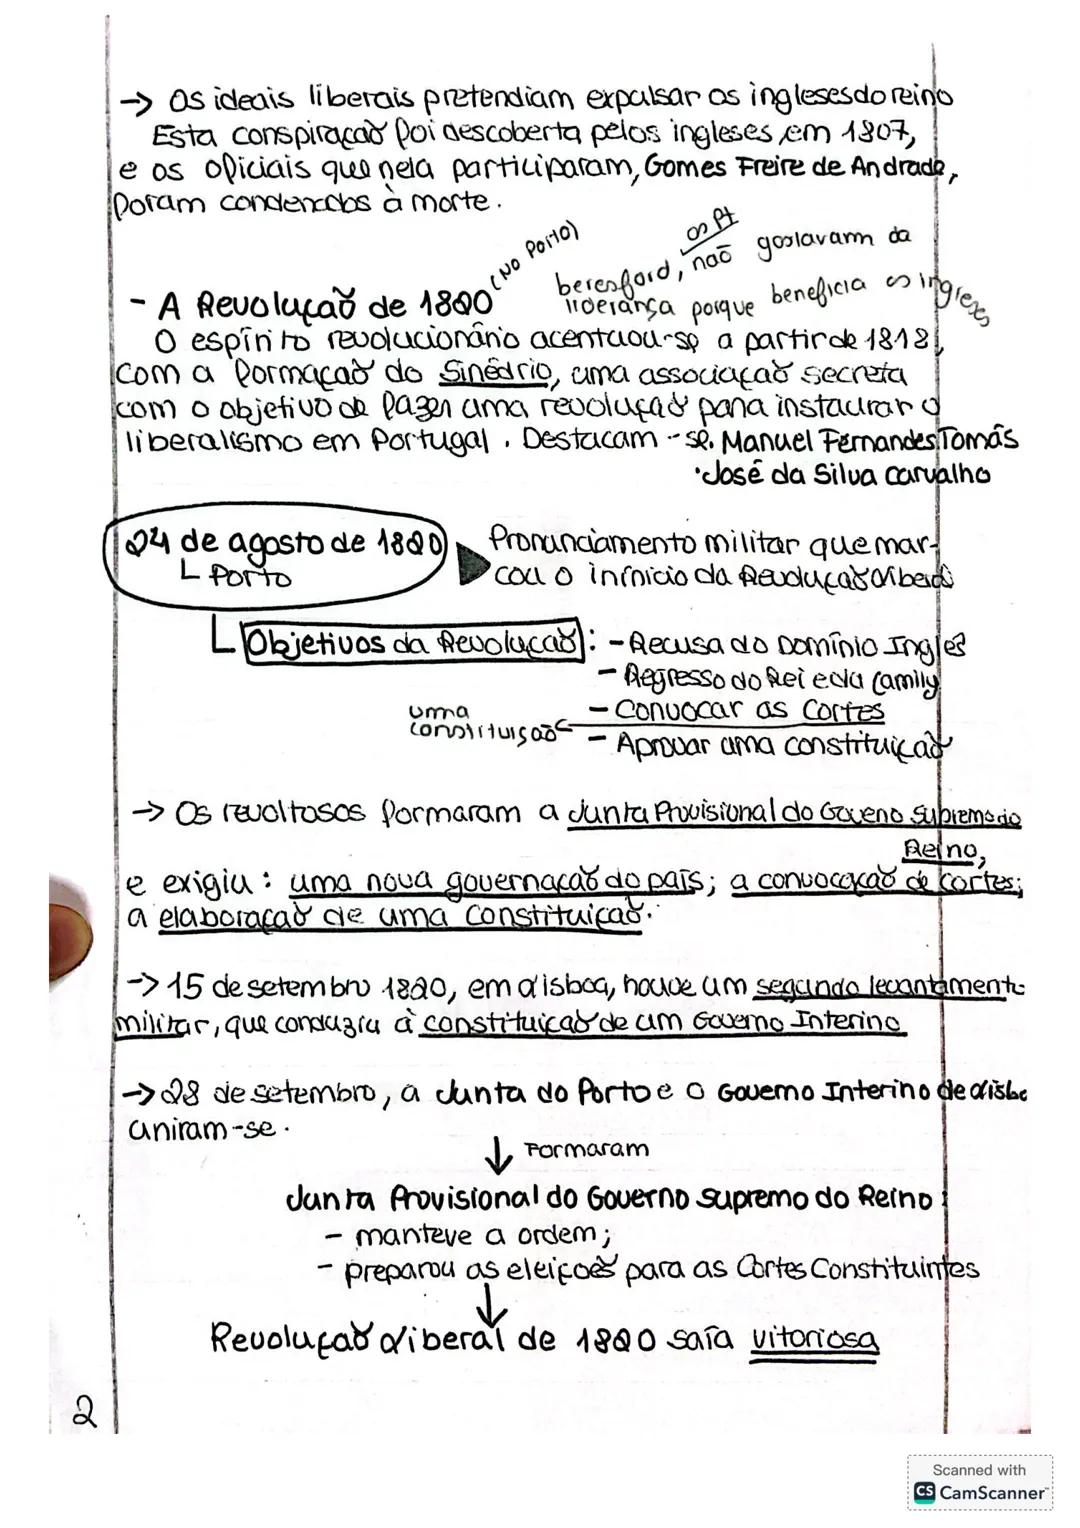 → Os ideais liberais pretendiam expulsar os ingleses do reino
Esta conspiração foi descoberta pelos ingleses em 1807,
e os oficiais que nela participaram, Gomes Freire de Andrade,
foram condenados à morte.
- A Revolução de 1820 (NO PORTO)
beresford, os Pt não gostavam da
liderança porque beneficia os ingleses
O espírito revolucionário acentuou-se a partir de 1818,
com a formação do Sinédrio, uma associação secreta
com o objetivo de fazer uma revolução para instaurar o
liberalismo em Portugal. Destacam-se: Manuel Fernandes Tomás
• José da Silva Carvalho
24 de agosto de 1820
Porto
Pronunciamento militar que mar-
cou o inínicio da Revolução liberal
Objetivos da Revolução: - Recusa do Domínio Inglês
- Regresso do Rei e da family
- Convocar as Cortes
uma constituisão
- Aprovar uma constituição
→ Os revoltosos formaram a Junta Provisional do Goveno Supremo do
Reino,
e exigiu: uma nova governação do país; a convocação de cortes;
a elaboração de uma Constituição.
→ 15 de setembro 1820, em Lisboa, houve um segundo levantamento
militar, que conduziu à constituição de um Governo Interino
→ 28 de setembro, a Junta do Porto e o Governo Interino de Lisbo
uniram-se.
↓ Formaram
Junta Provisional do Governo Supremo do Reino:
- manteve a ordem;
- preparou as eleições para as Cortes Constituintes
↓
Revolução Liberal de 1820 saía vitoriosa
2
Scanned with
CS CamScanner